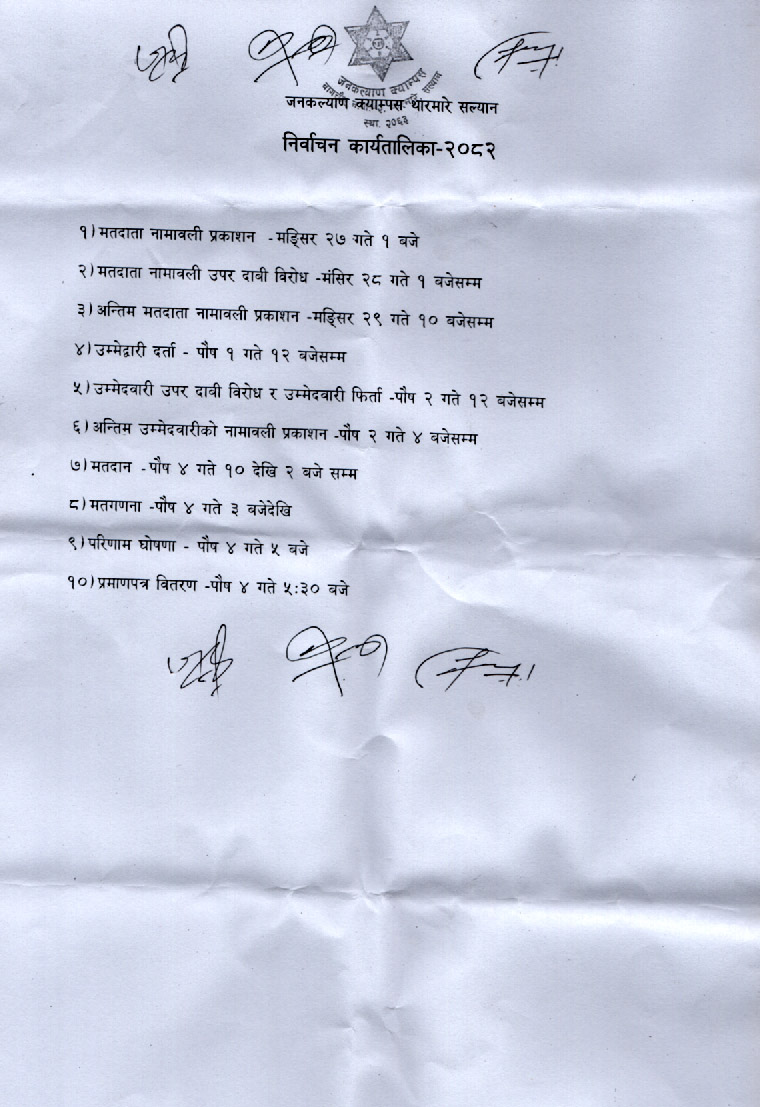 जनकल्याण क्याम्पस
स्था. २०६३
जनकल्याण क्याम्पस थारमारे सल्यान
निर्वाचन कार्यतालिका-२०८२
१) मतदाता नामावली प्रकाशन -मङ्सिर २७ गते १ बजे
२) मतदाता नामावली उपर दाबी विरोध -मंसिर २८ गते १ बजेसम्म
३) अन्तिम मतदाता नामावली प्रकाशन -मङ्सिर २९ गते १० बजेसम्म
४) उम्मेद्वारी दर्ता - पौष १ गते १२ बजेसम्म
५) उम्मेदवारी उपर दावी विरोध र उम्मेदवारी फिर्ता -पौष २ गते १२ बजेसम्म
६) अन्तिम उम्मेदवारीको नामावली प्रकाशन -पौष २ गते ४ बजेसम्म
७) मतदान -पौष ४ गते १० देखि २ बजे सम्म
८) मतगणना -पौष ४ गते ३ बजेदेखि
९) परिणाम घोषणा - पौष ४ गते ५ बजे
१०) प्रमाणपत्र वितरण -पौष ४ गते ५:३० बजे